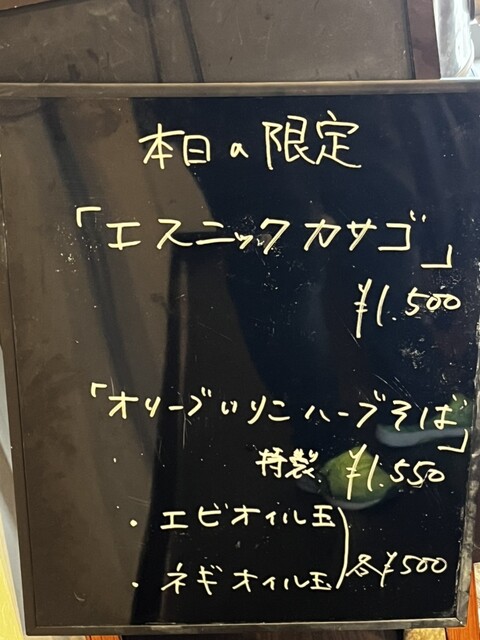 本日の限定
「エスニックカサゴ」
¥1.500
「オリーブいりこハーブそば」
特製 ¥1.550
・エビオイル玉
・ネギオイル玉
各¥500